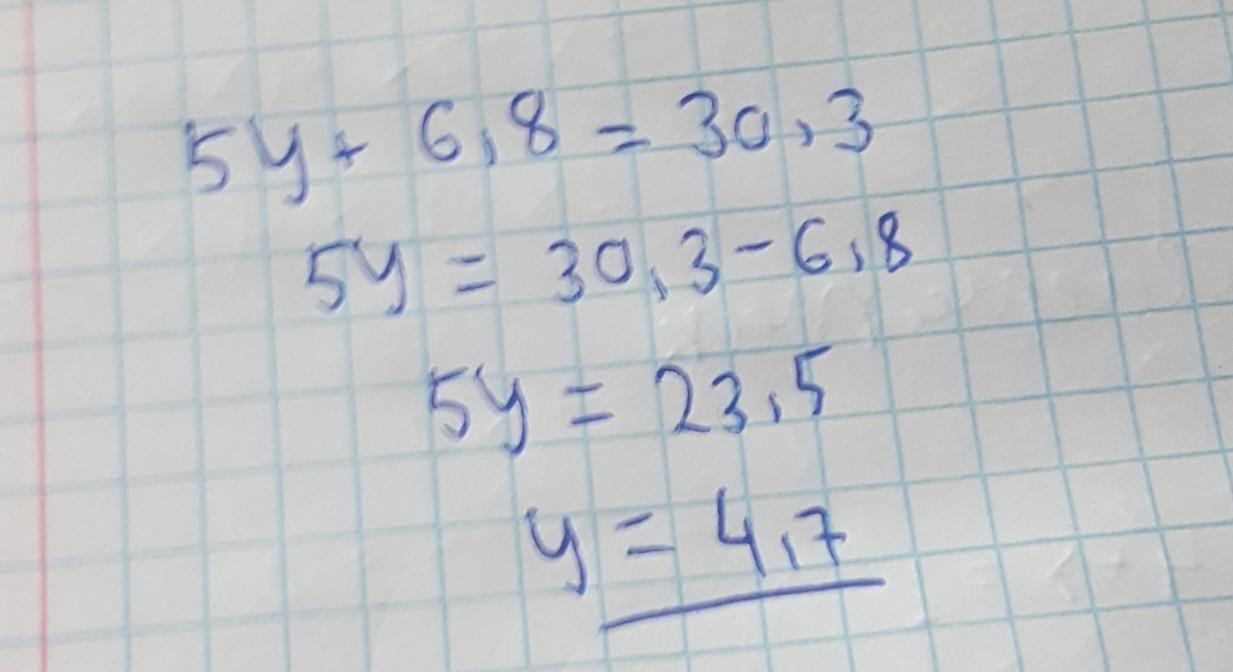 5y + 6,8 = 30,3
5y = 30,3 - 6,8
5y = 23,5
y = 4,7